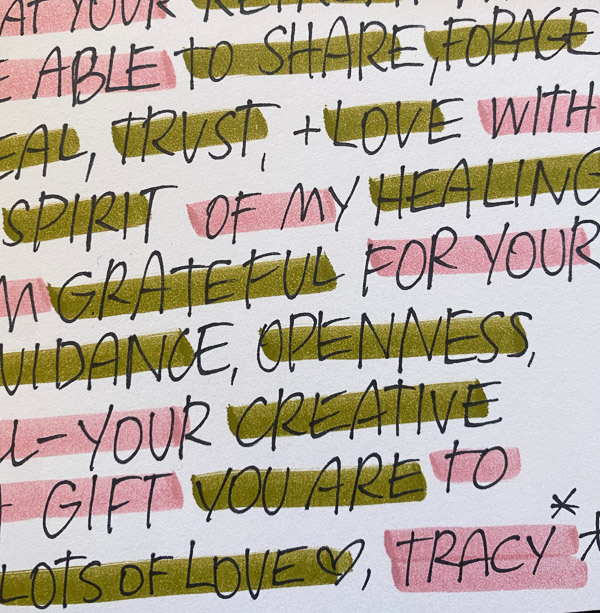 AT YOUR RETREAT
E ABLE TO SHARE, FORAGE
EAL, TRUST, + LOVE WITH
SPIRIT OF MY HEALING
M GRATEFUL FOR YOUR
UIDANCE, OPENNESS,
LL-YOUR CREATIVE
GIFT YOU ARE TO
LOTS OF LOVE♡, TRACY*